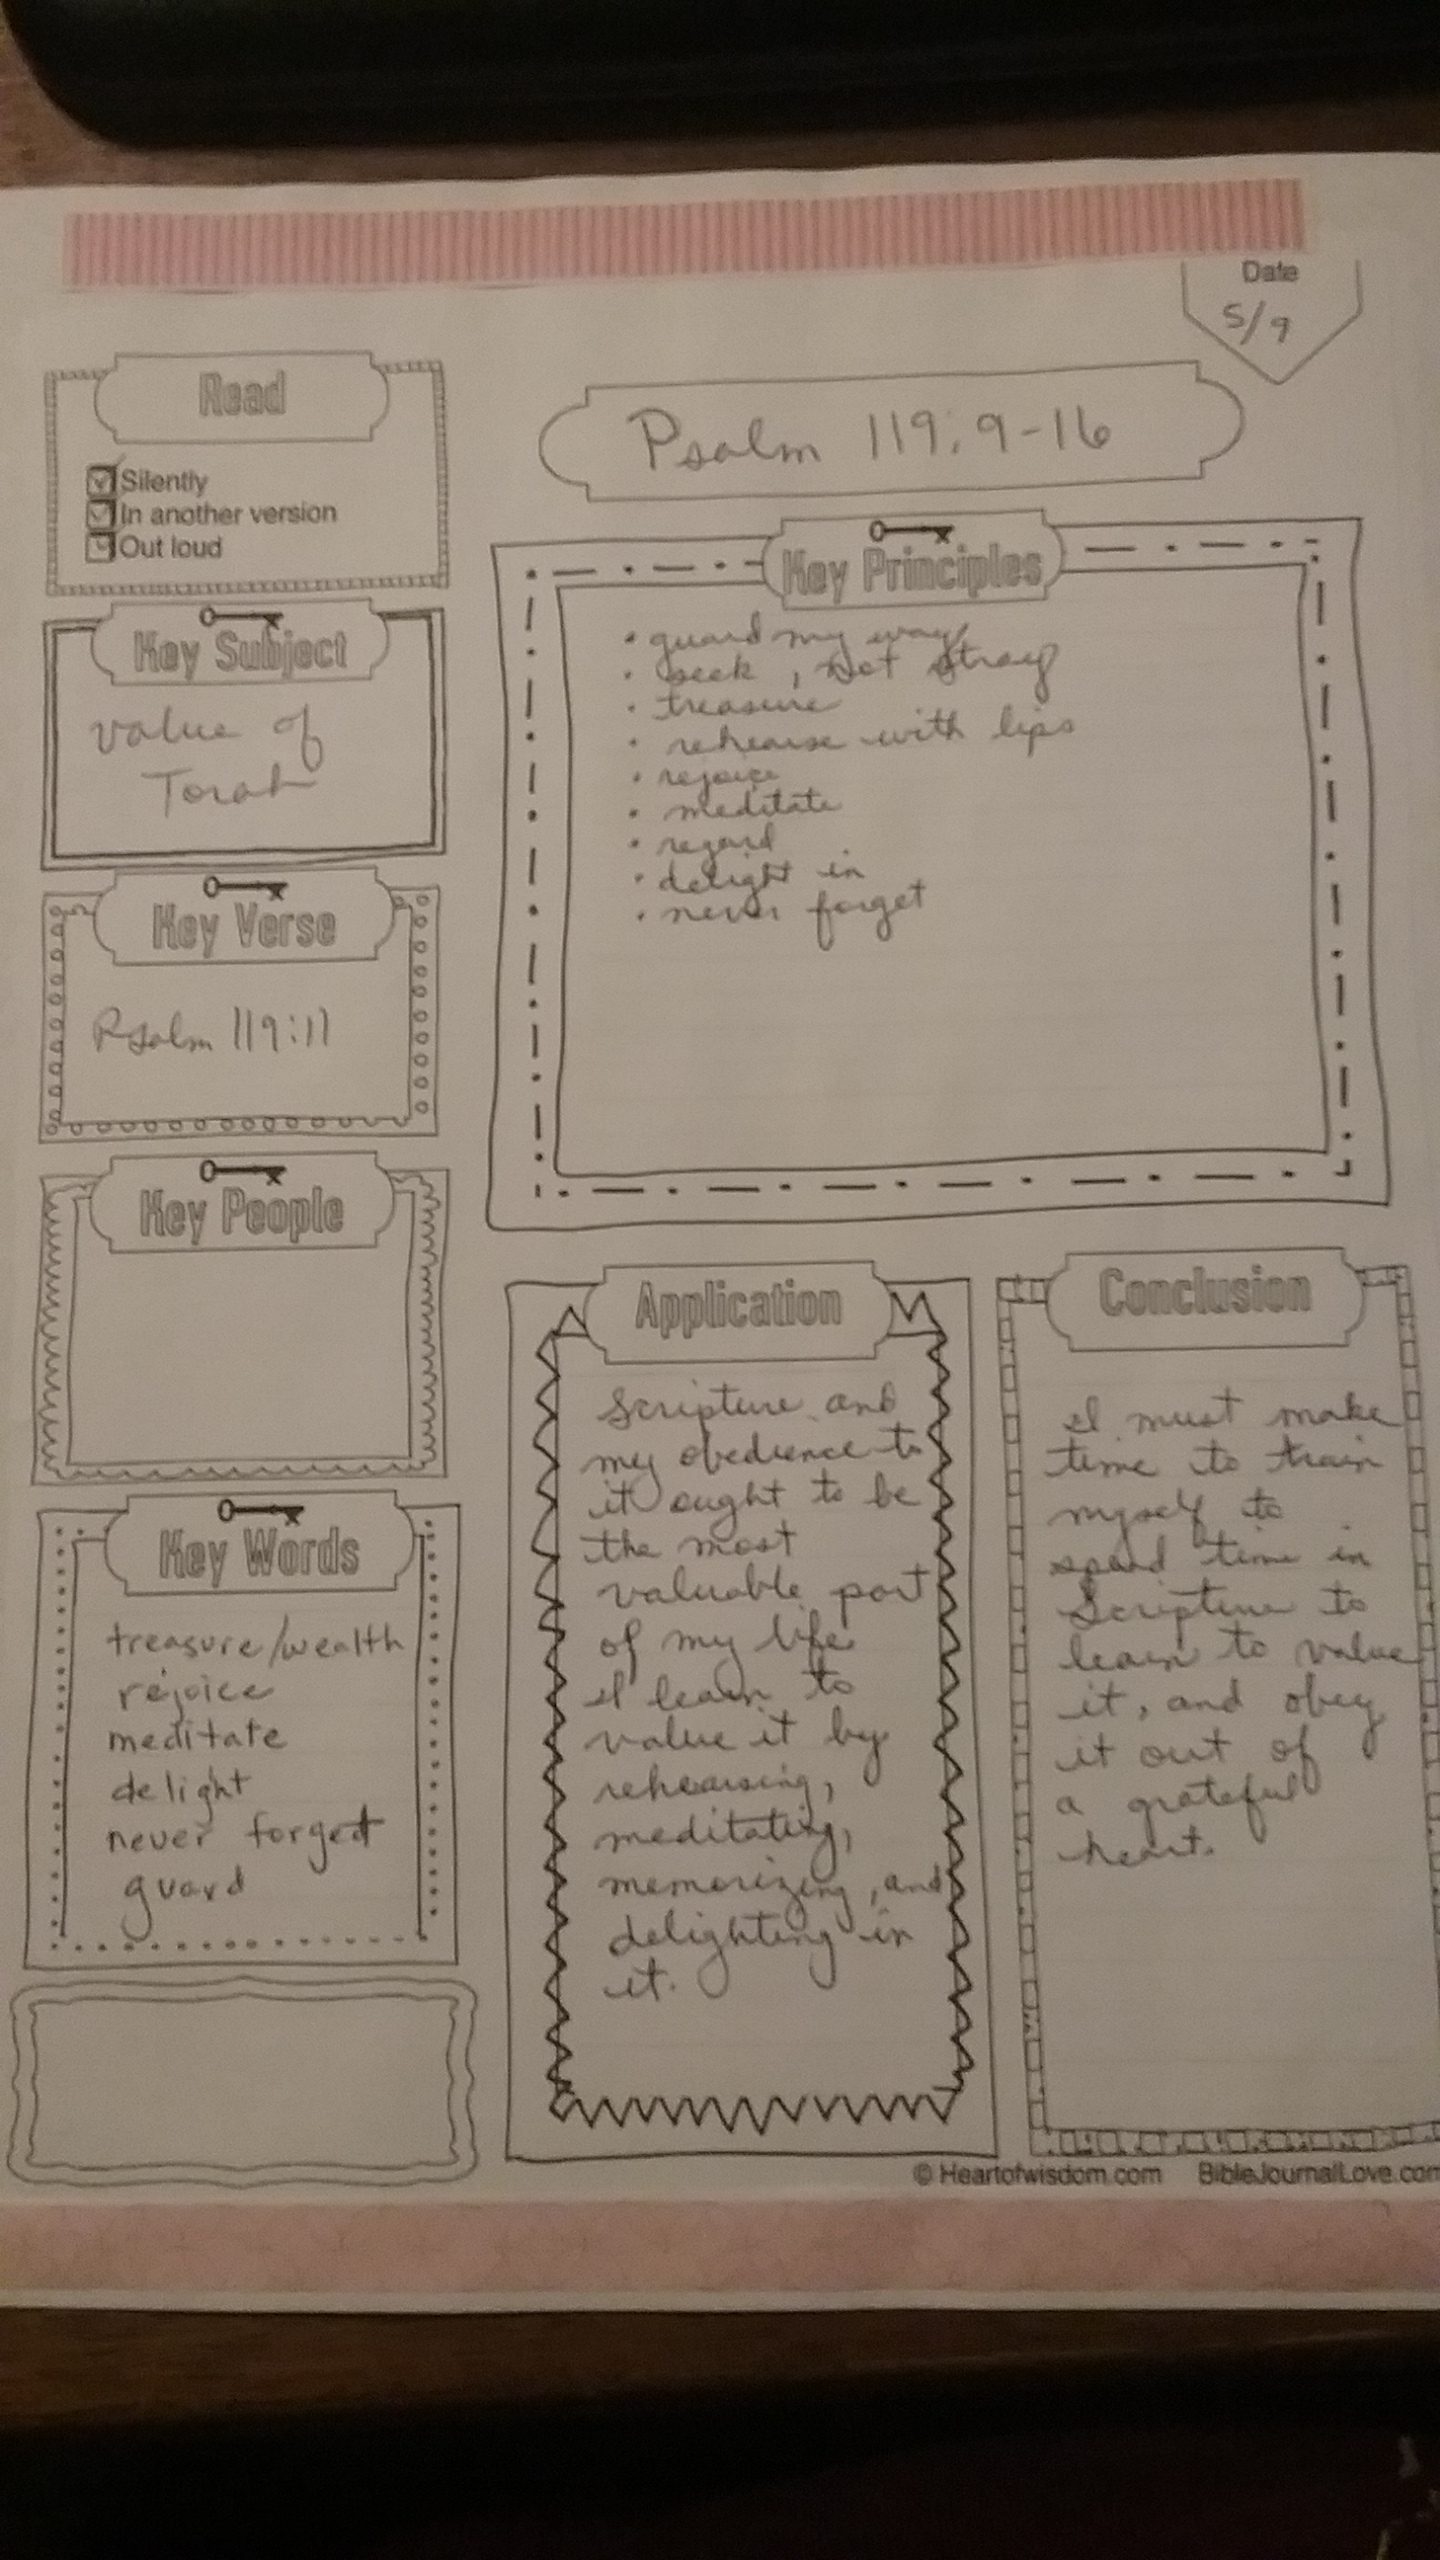 Date
5/9
Read
Silently
In another version
Out loud
Psalm 119:9-16
Key Subject
value of
Torah
Key Verse
Psalm 119:11
Key People
Key Words
treasure/wealth
rejoice
meditate
delight
never forget
guard
Key Principles
• guard my way
• seek, not stray
• treasure
• rehearse with lips
• rejoice
• meditate
• regard
• delight in
• never forget
Application
Scripture and
my obedience to
it ought to be
the most
valuable part
of my life
I learn to
value it by
rehearsing,
meditating,
memorizing, and
delighting in
it.
Conclusion
I must make
time to train
myself to
spend time in
Scripture to
learn to value
it, and obey
it out of
a grateful
heart.
© Heartofwisdom.com BibleJournalLove.com